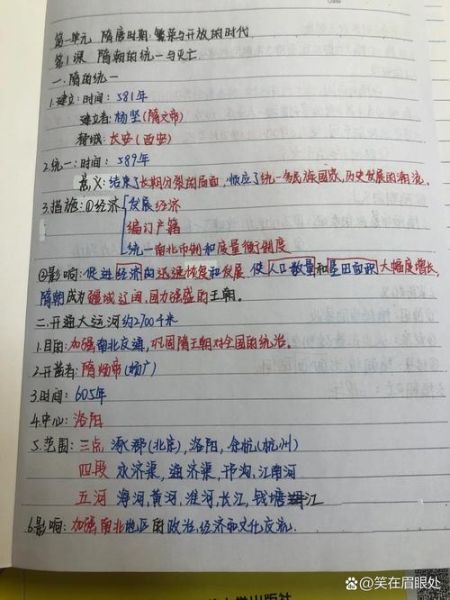 第一单元 隋唐时期:繁荣与开放的时代
第1课 隋朝的统一与灭亡
一.隋的统一
1.建立:时间:581年
建立者:杨坚(隋文帝)
都城:长安(西安)
2.统一:时间:589年
意义:结束了长期分裂的局面,顺应了统一多民族国家,历史发展的潮流。
3.措施:①经济 发展经济
编订户籍
统一南北币制和度量衡制度
②影响:促进经济的迅速恢复和发展 使人口数量和垦田面积大幅度增长,
隋朝成为疆域辽阔,国力强盛的王朝。
二.开通大运河 约2700千米
1.目的:加强南北交通,巩固隋王朝对全国的统治。
2.开凿者:隋炀帝(杨广)
3.时间:605年
4.中心:洛阳
5.范围:三点 涿郡(北京),洛阳,余杭(杭州)
四段 永济渠,通济渠,邗沟,江南河
五河 海河,黄河,淮河,长江,钱塘江
6.影响:加强南北地区的政治,经济和文化交流.
大学出版社
@笑在眉眼处